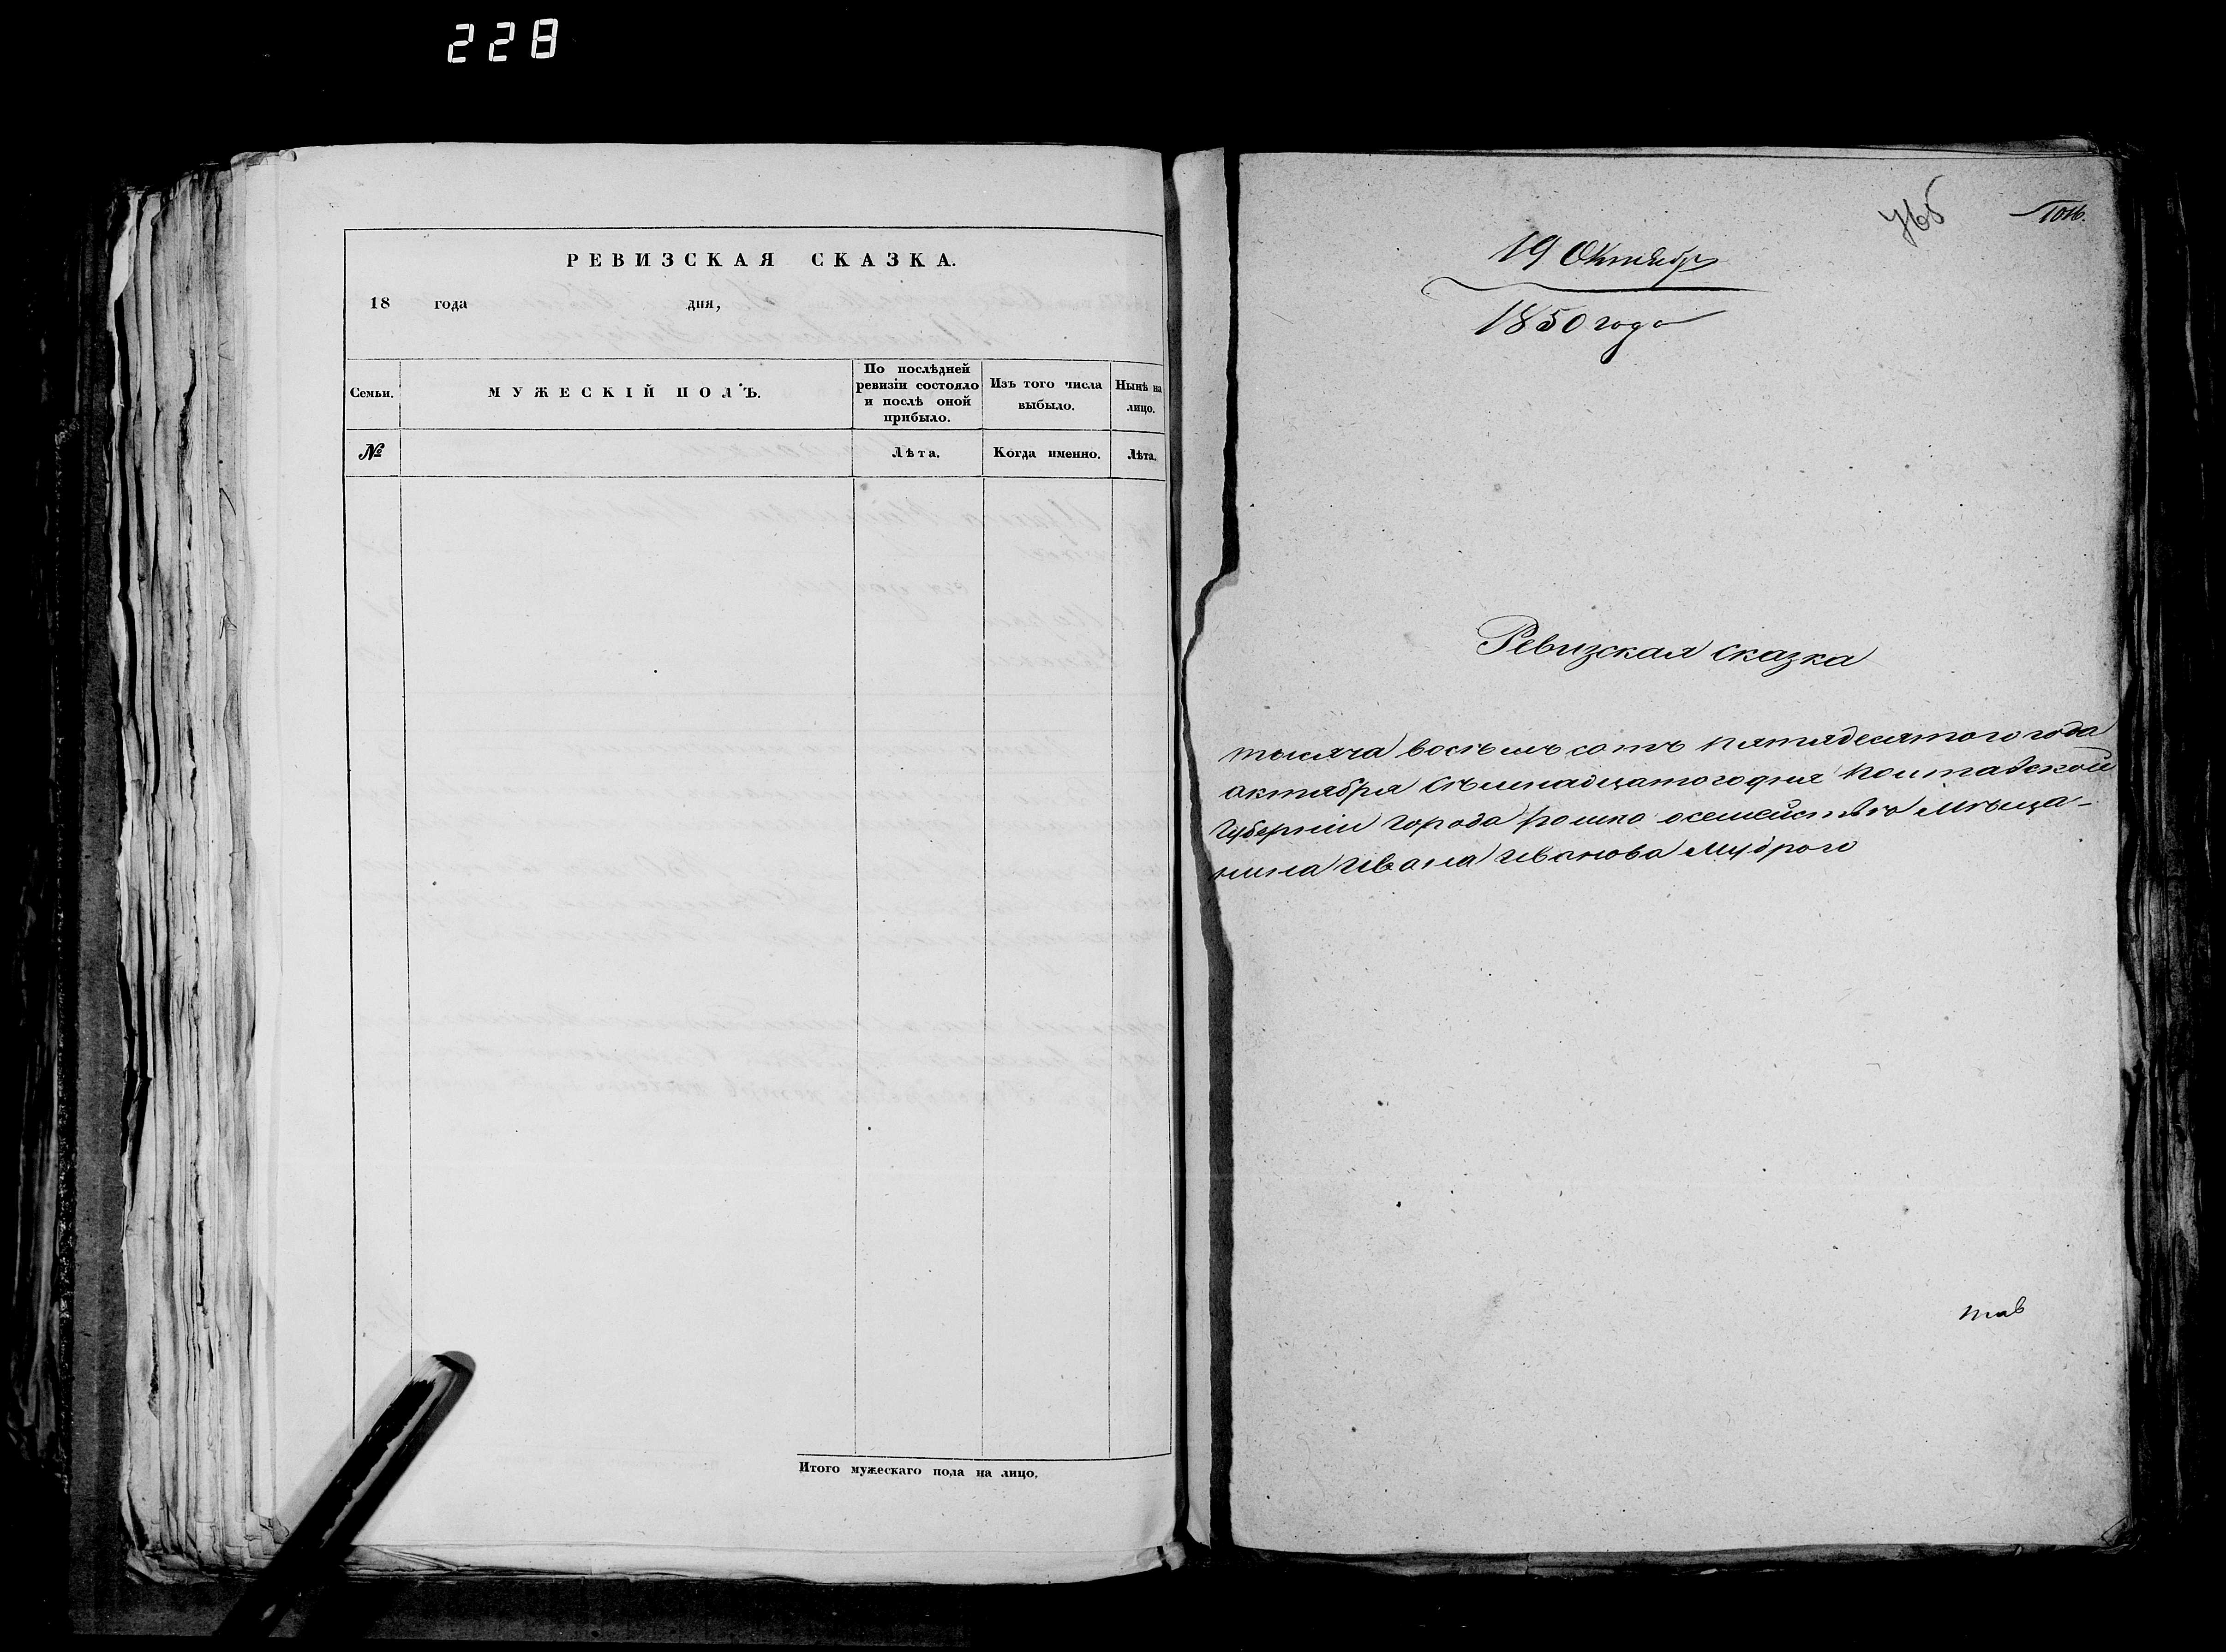 228
РЕВИЗСКАЯ СКАЗКА.
18 года дня,
Семьи.
МУЖЕСКІЙ ПОЛЪ.
По послѣдней
ревизіи состояло
и послѣ оной
прибыло.
Изъ того числа
выбыло.
Нынѣ на
лицо.
№
Лѣта.
Когда именно.
Лѣта.
Итого мужескаго пола на лицо.
19 Октября
1850 года
Ревизская сказка
тысяча восѣмъ сотъ пятядесятого года
октября сѣмнадцатого дня Полтавской
Губерніи города ромна осемействѣ Мѣща-
нина Ивана Иванова Мудрого